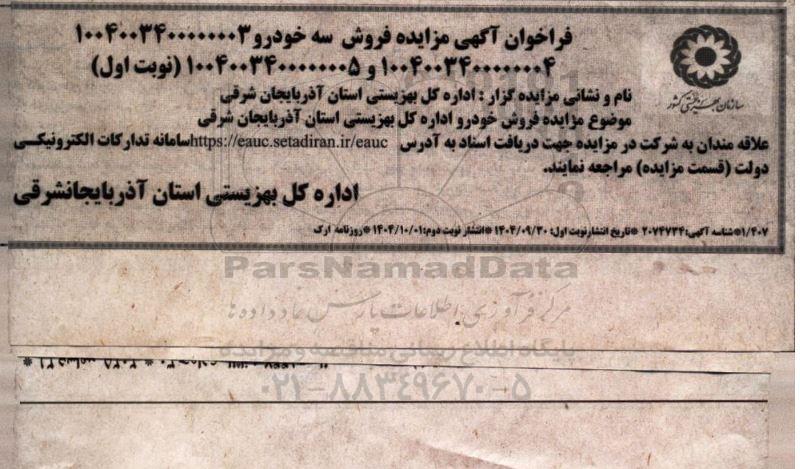 فراخوان آگهی مزایده فروش سه خودرو ۱۰۰۴۰۰۳۴۰۰۰۰۰۰۰۳
۱۰۰۴۰۰۳۴۰۰۰۰۰۰۰۴ و ۱۰۰۴۰۰۳۴۰۰۰۰۰۰۰۵ (نوبت اول)
سازمان بهزیستی کشور
نام و نشانی مزایده گزار : اداره کل بهزیستی استان آذربایجان شرقی
موضوع مزایده فروش خودرو اداره کل بهزیستی استان آذربایجان شرقی
علاقه مندان به شرکت در مزایده جهت دریافت اسناد به آدرس https://eauc.setadiran.ir/eauc سامانه تدارکات الکترونیکی
دولت (قسمت مزایده) مراجعه نمایند.
اداره کل بهزیستی استان آذربایجانشرقی
۱/۴۰۷*شناسه آگهی: ۲۰۷۴۷۳۴ *تاریخ انتشارنوبت اول: ۱۴۰۴/۰۹/۳۰ *انتشار نوبت دوم: ۱۴۰۴/۱۰/۰۱ *روزنامه ارک
ParsNamadData
مرکز فرآوری اطلاعات پارس نماد داده ها
پایگاه اطلاع رسانی مناقصه و مزایده
۰۲۱-۸۸۳۴۹۶۷۰-۵